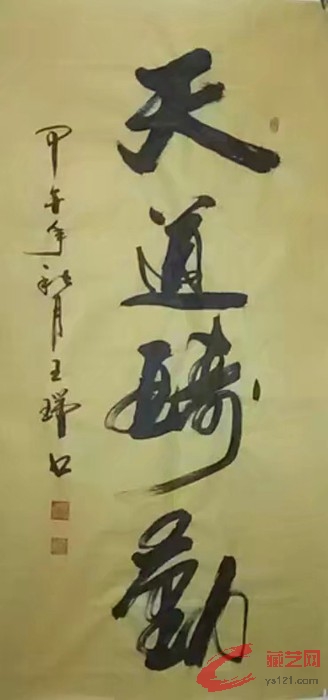 天道酬勤
甲午年秋月王瑞
藏艺网
ys121.com